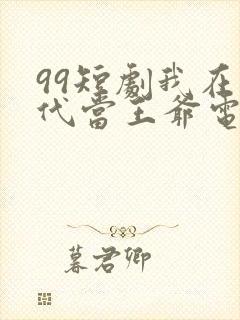 99短劇我在
代當王爺電
暮君卿